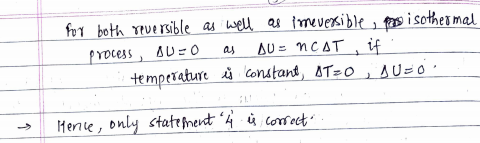 for both reversible as well as irreversible, isothermal
process, ΔU=0 as ΔU= nCΔT, if
temperature is constant, ΔT=0, ΔU=0.
→ Hence, only statement '4' is correct.